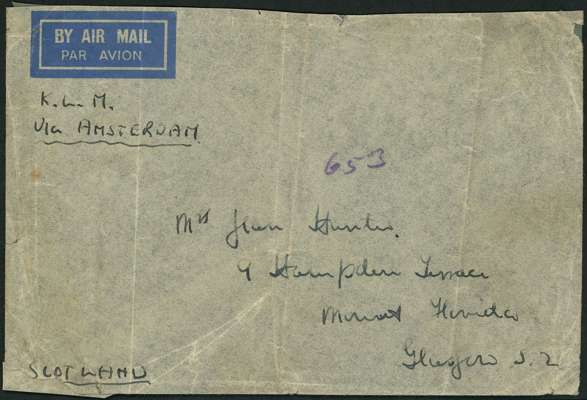 BY AIR MAIL
PAR AVION
K.L.M.
Via AMSTERDAM
653
Mrs Jean Hunter.
4 Hampden Terrace
Mount Florida
Glasgow S.2
SCOTLAND